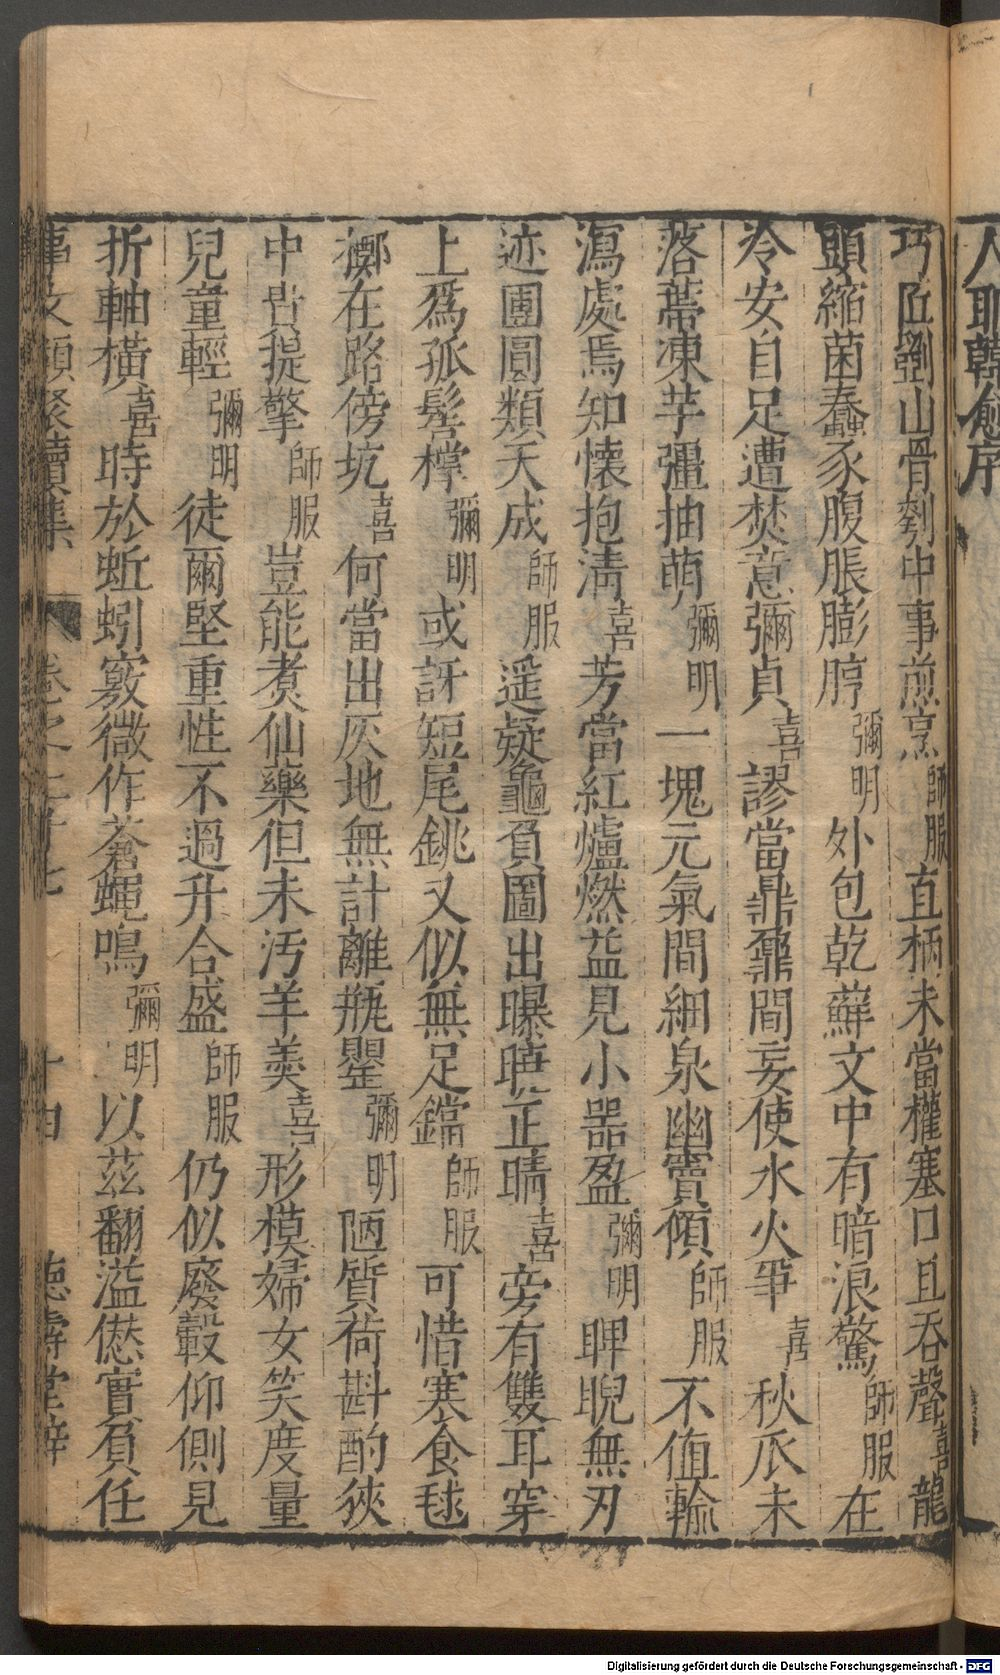 人耶韓愈序
巧匠斲山骨刳中事煎烹師服直柄未當權塞口且吞聲喜龍
頭縮菌蠢豕腹脹膨脝彌明外包乾蘚文中有暗浪驚師服在
冷安自足遭焚意彌貞喜謬當鼎鼐間妄使水火爭喜秋瓜未
落蔕凍芋彊抽萌彌明一塊元氣間細泉幽竇傾師服不值輸
瀉處焉知懷抱淸喜芳當紅爐燃益見小器盈彌明睥睨無刃
迹團圓類天成師服遥疑龜負圖出曝曉正晴喜旁有雙耳穿
上爲孤髻撑彌明或訝短尾銚又似無足鐺師服可惜寒食毬
擲在路傍坑喜何當出灰地無計離瓶罌彌明陋質荷斟酌狹
中甞提擎師服豈能煑仙藥但未汚羊羮喜形模婦女笑度量
兒童輕彌明徒爾堅重性不過升合盛師服仍似廢轂仰側見
折軸橫喜時於蚯蚓竅微作蒼蠅鳴彌明以茲翻溢愆實負任
事文類聚續集 卷之十七 十四 德壽堂梓
Digitalisierung gefördert durch die Deutsche Forschungsgemeinschaft - DFG